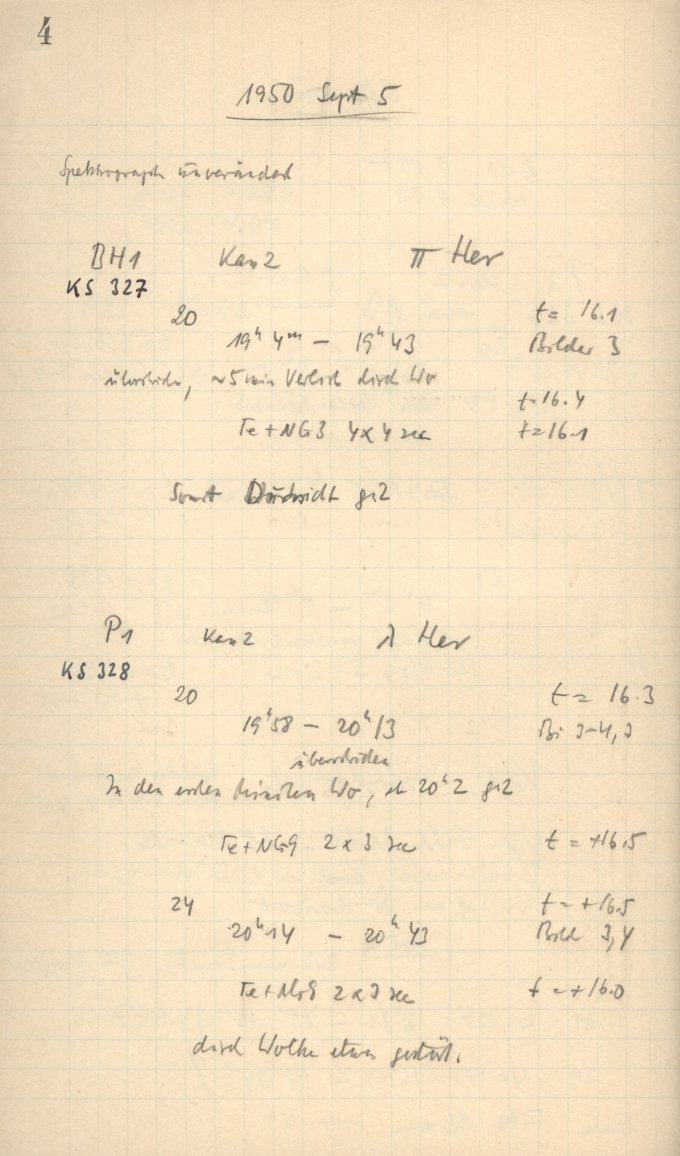 4
1950 Sept 5
Spektrograph unverändert
BH1 Kam 2 π Her
KS 327
20 t = 16.1
19h 4m – 19h 43 Bilder 3
überschieden, ~5 min Verlust durch Wo
t=16.4
Fe + NG3 4x4 sec t=16.1
Sonst Durchsicht gs2
P1 Kam 2 λ Her
KS 328
20 t = 16.3
19h58 – 20h13 Bi 3–4, 3
überschieden
In den ersten Minuten Wo, ab 20h2 gs2
Fe + NG9 2 x 3 sec t = +16.5
24 t = +16.5
20h14 – 20h 43 Bild 3,4
Fe + NG9 2 x 3 sec t = +16.0
durch Wolke etwas gestört.